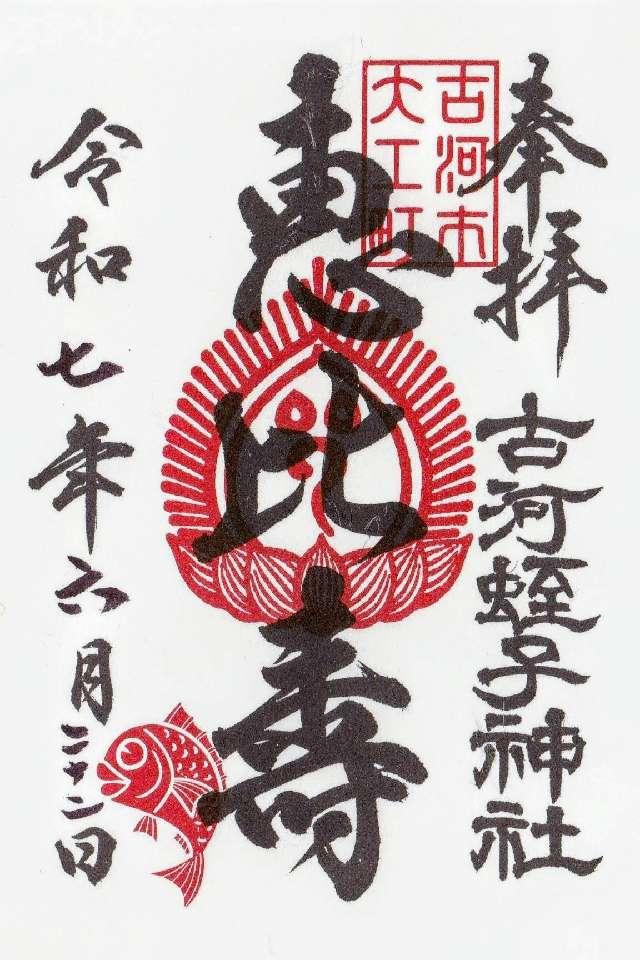 奉拝
古河蛭子神社
古河市
大工町
恵比寿
令和七年六月二十二日